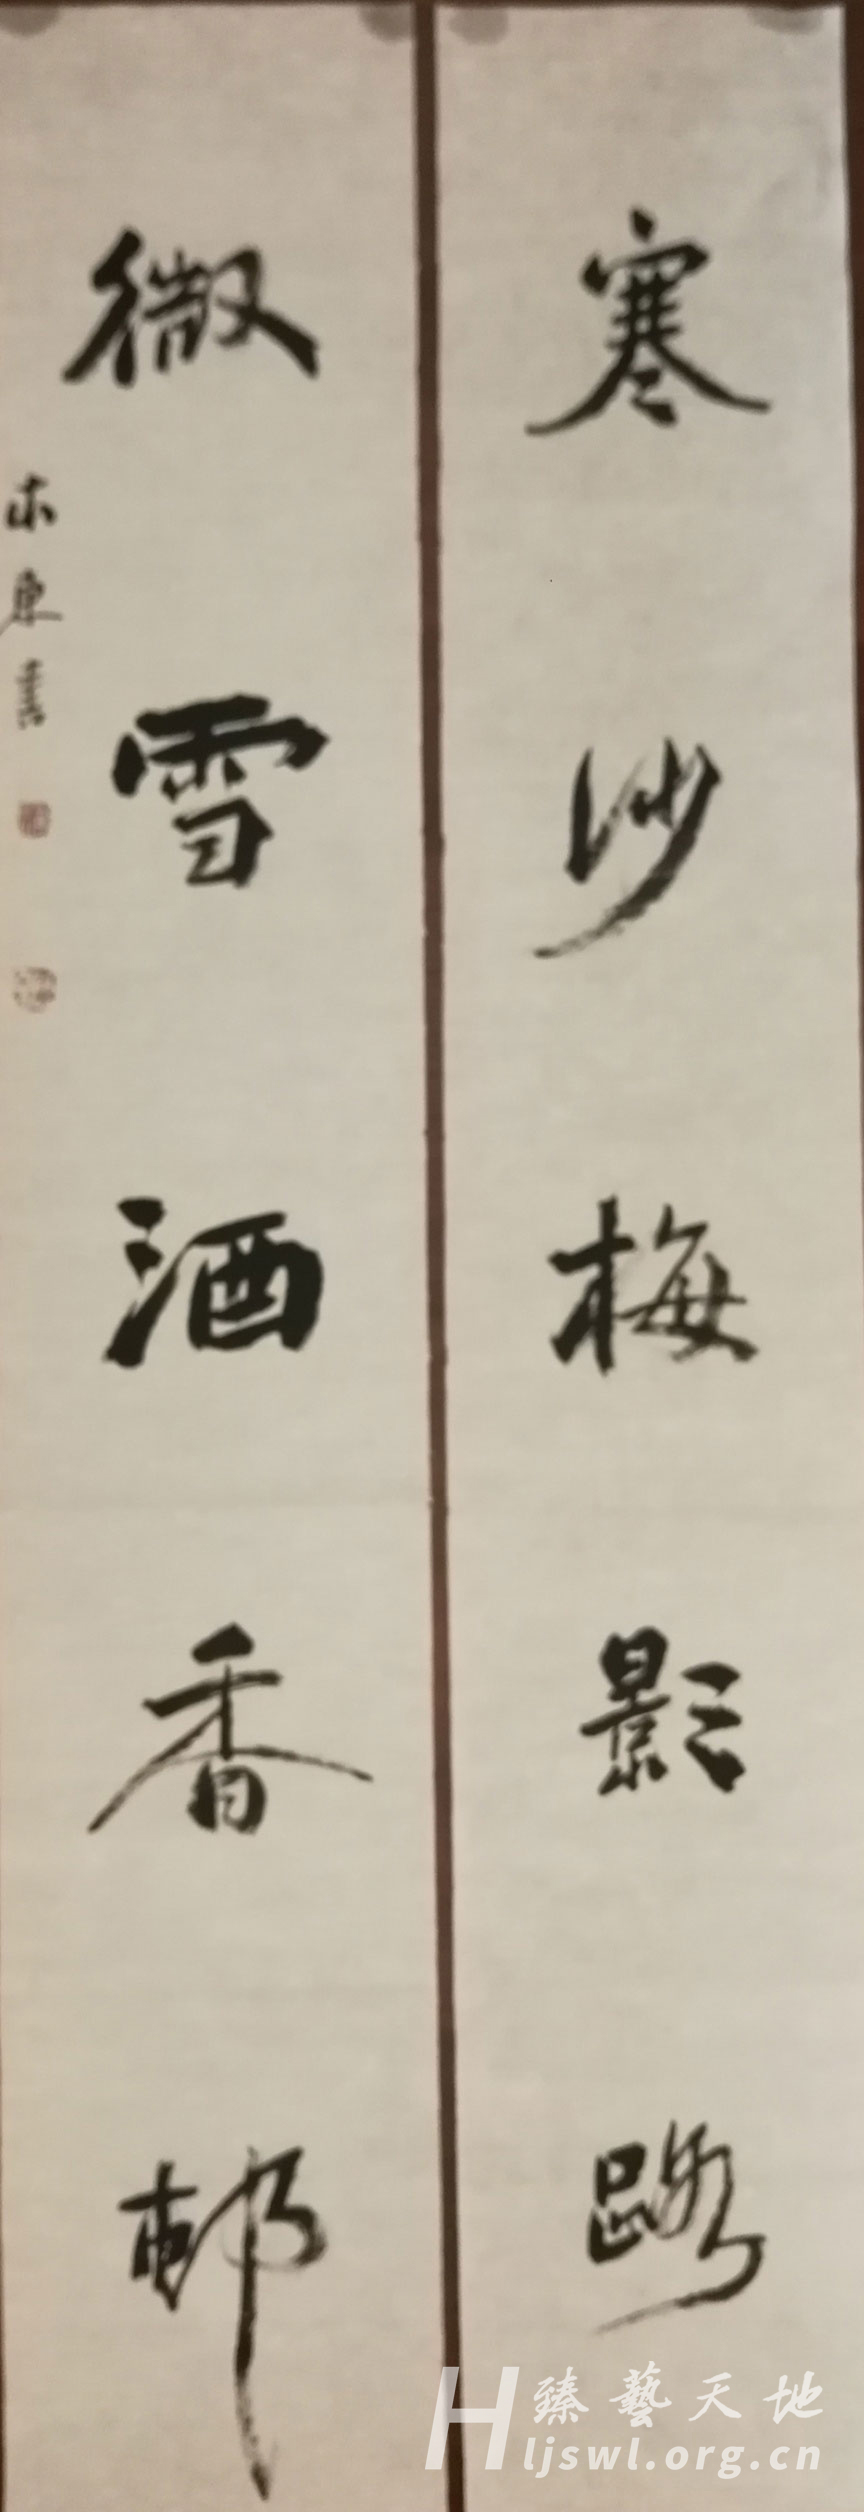 寒沙梅影路
微雪酒香邨
東書
臻藝天地
Hljswl.org.cn